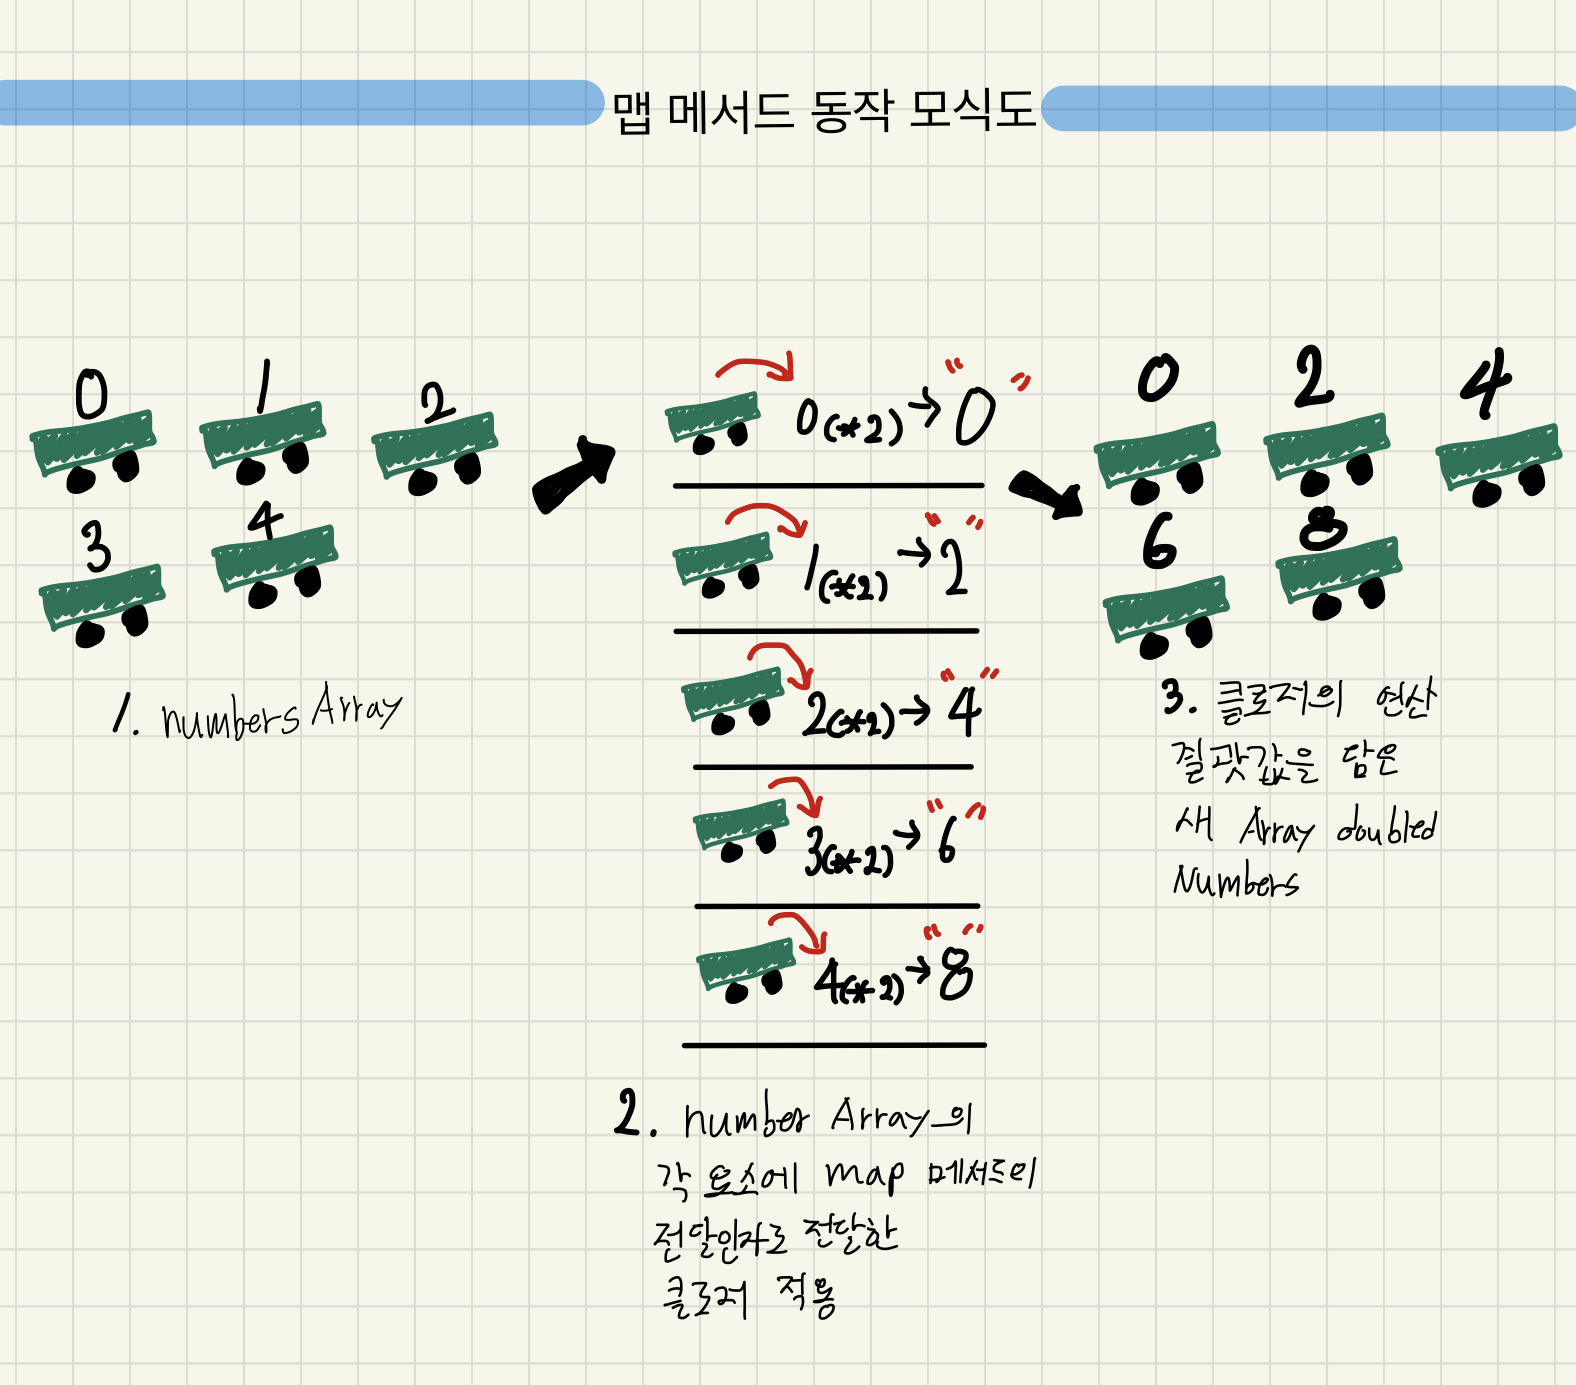 맵 메서드 동작 모식도
0 1 2
3 4
1. numbers Array
0(*2) → "0"
1(*2) → "2"
2(*2) → "4"
3(*2) → "6"
4(*2) → "8"
2. number Array의
각 요소에 map 메서드의
전달인자로 전달한
클로저 적용
0 2 4
6 8
3. 클로저의 연산
결괏값을 담은
새 Array doubled
Numbers